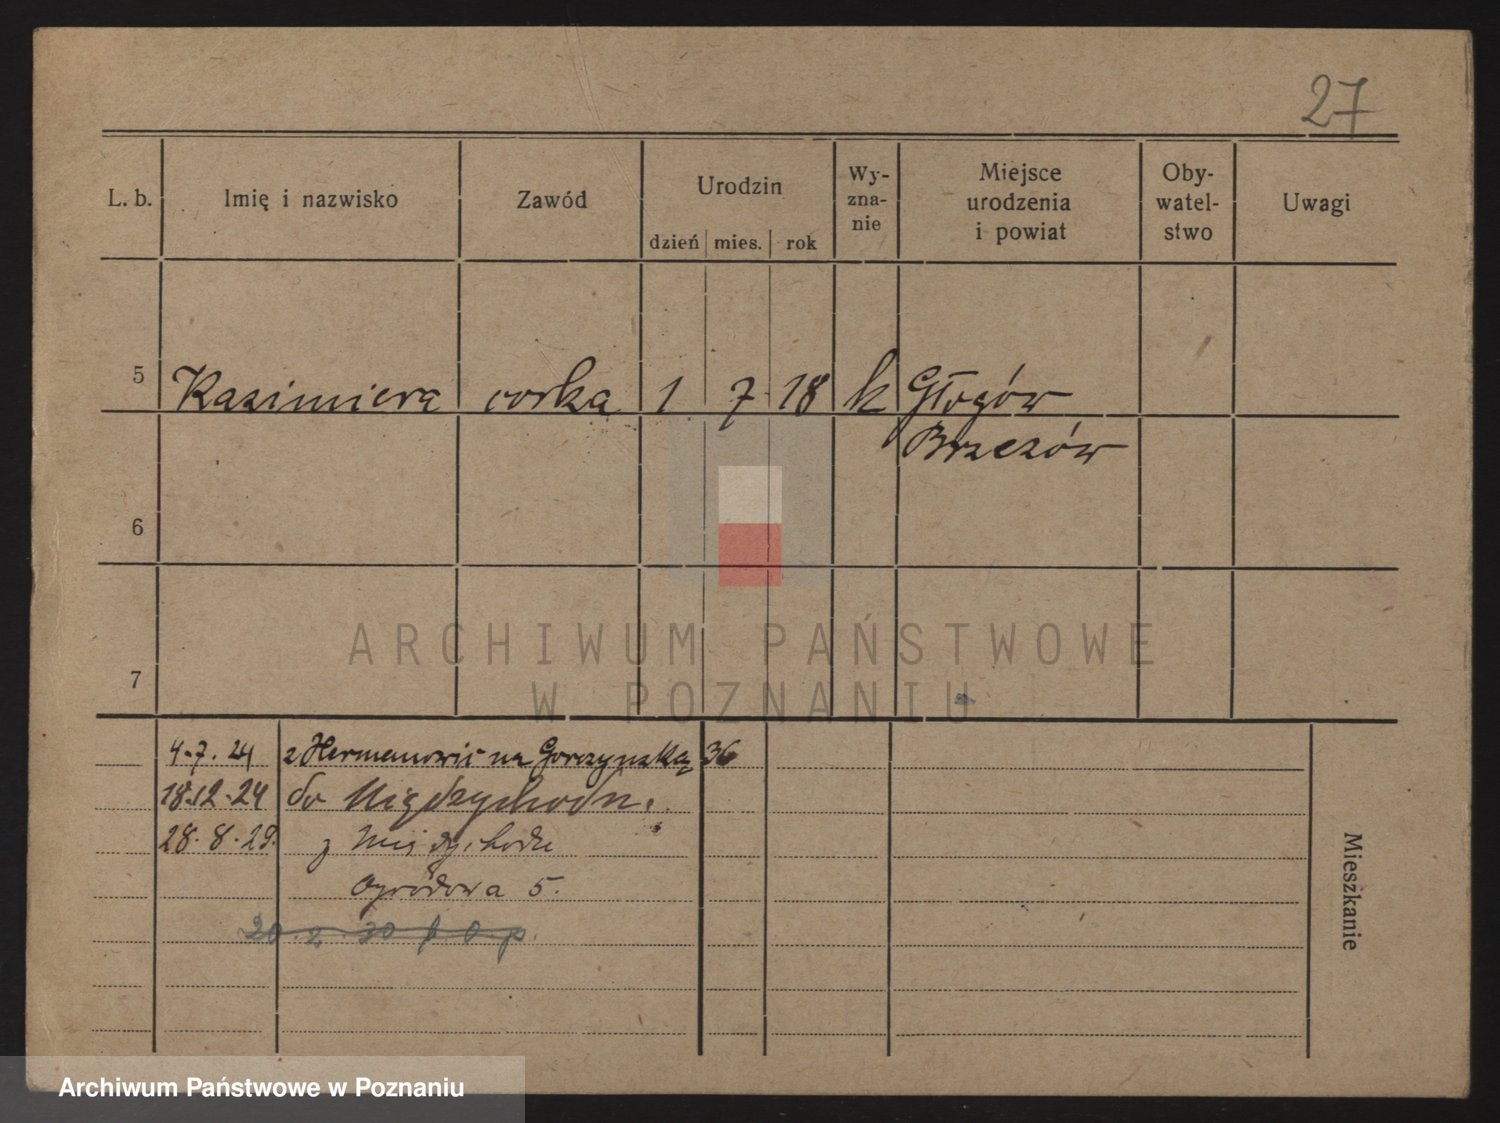 27
L. b. Imię i nazwisko Zawód Urodzin dzień mies. rok Wy-zna-nie Miejsce urodzenia i powiat Oby-watel-stwo Uwagi
5 Kazimiera corka 1 7 18 k Głogów
Brzezów
6
7
ARCHIWUM PAŃSTWOWE
W POZNANIU
4.7.24 z Hermanowic na Gorczynską 36
18.12.24 do Międzychodu.
28.8.29. z Międzychodu
Ogrodowa 5.
20.2.30
Mieszkanie
Archiwum Państwowe w Poznaniu